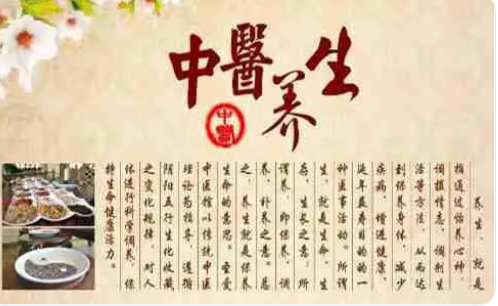 中醫养生
中醫
养生，就是
指通过怡养心神
调摄情志、调剂生
活等方法，从而达
到保养身体、减少
疾病、增进健康、
延年益寿目的的一
种医事活动。所谓
生，就是生命、生
存、生长之意；所
谓养，即保养、调
养、补养之意。总
之，养生就是保养
生命的意思。圣爱
中医馆以传统中医
理论为指导，遵循
阴阳五行生化收藏
之变化规律，对人
体进行科学调养，保
持生命健康活力。